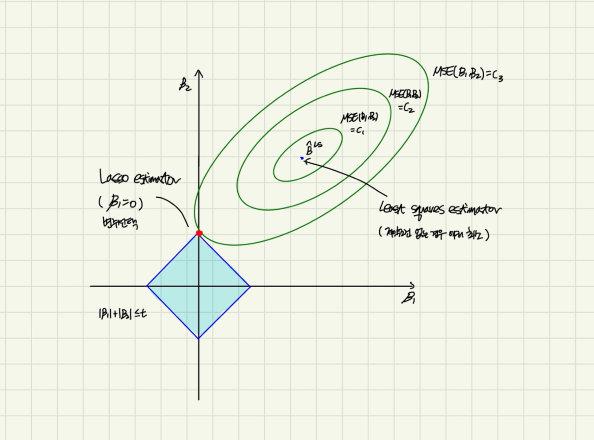 β₂
MSE(β₁,β₂)=C₃
MSE(β₁,β₂)
=C₂
MSE(β₁,β₂)
=C₁
β̂ᴸˢ
Lasso estimator
(β₁=0)
변수선택
Least squares estimator
(제약조건 없는 경우 최소)
β₁
|β₁|+|β₂|≤t